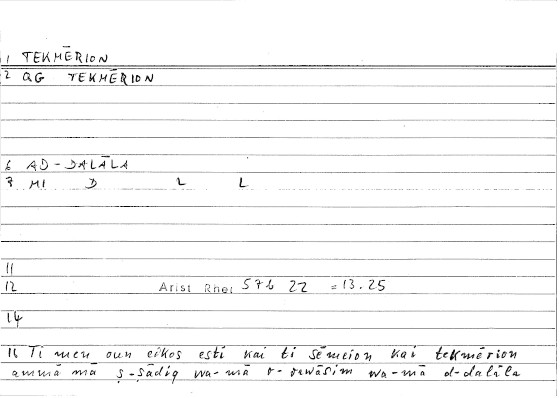 1 TEKMĒRION
2 QG TEKMĒRION
6 AD-DALĀLA
7 MI D L L
11
12 Arist Rhet 57b 22 = 13.25
14
16 Ti men oun eikos esti kai ti sēmeion kai tekmērion
ammā mā ṣ-ṣādiq wa-mā r-rawāsim wa-mā d-dalāla